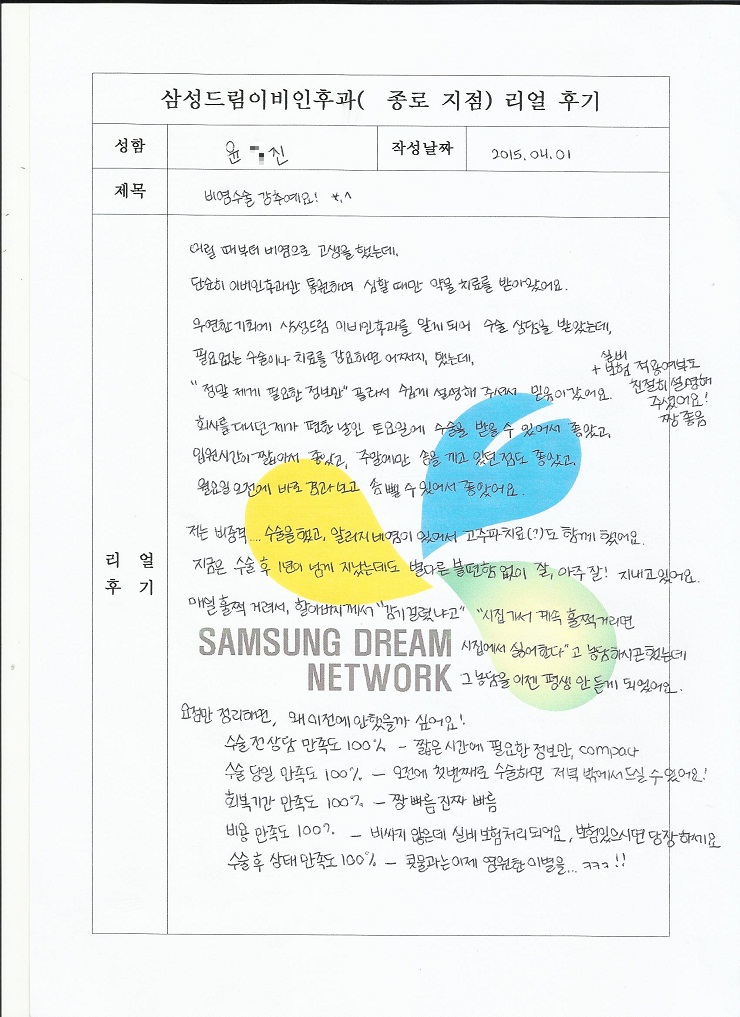 삼성드림이비인후과( 종로 지점) 리얼 후기
성함 윤 진 작성날짜 2015.04.01
제목 비염수술 강추예요! *.^
어릴 때부터 비염으로 고생을 했는데,
단순히 이비인후과만 통원하며 심할 때만 약물치료를 받아왔어요.
우연한 기회에 삼성드림 이비인후과를 알게 되어 수술 상담을 받았는데,
필요없는 수술이나 치료를 강요하면 어쩌지, 했는데,
"정말 제게 필요한 정보만" 골라서 쉽게 설명해 주셔서 믿음이 갔어요.
+ 실비보험 적용여부도
친절히 설명해
주셨어요!
짱 좋음
회사를 다니던 제가 편한 날인 토요일에 수술을 받을 수 있어서 좋았고,
입원시간이 짧아서 좋았고, 주말에만 솜을 끼고 있던 점도 좋았고,
월요일 오전에 바로 경과보고 솜 뺄 수 있어서 좋았어요.
저는 비중격.... 수술을 했고, 알러지 비염이 있어서 고주파치료(?)도 함께 했어요.
지금은 수술 후 1년이 넘게 지났는데도 별다른 불편함 없이 잘, 아주 잘! 지내고 있어요.
매일 훌쩍 거려서, 할아버지께서 "감기걸렸냐고" "시집가서 계속 훌쩍거리면
시집에서 싫어한다"고 농담하시곤 했는데
그 농담을 이젠 평생 안 듣게 되었어요.
SAMSUNG DREAM
NETWORK
리 얼
후 기
요점만 정리하면, 왜 이전에 안했을까 싶어요!
수술 전 상담 만족도 100% - 짧은 시간에 필요한 정보만, compact
수술 당일 만족도 100% - 오전에 첫번째로 수술하면 저녁 밖에서 드실 수 있어요!
회복기간 만족도 100% - 짱 빠름 진짜 빠름
비용 만족도 100% - 비싸지 않은데 실비보험처리 되어요, 보험있으시면 당장 하세요
수술 후 상태 만족도 100% - 콧물과는 이제 영원한 이별을... ㅋㅋㅋ!!